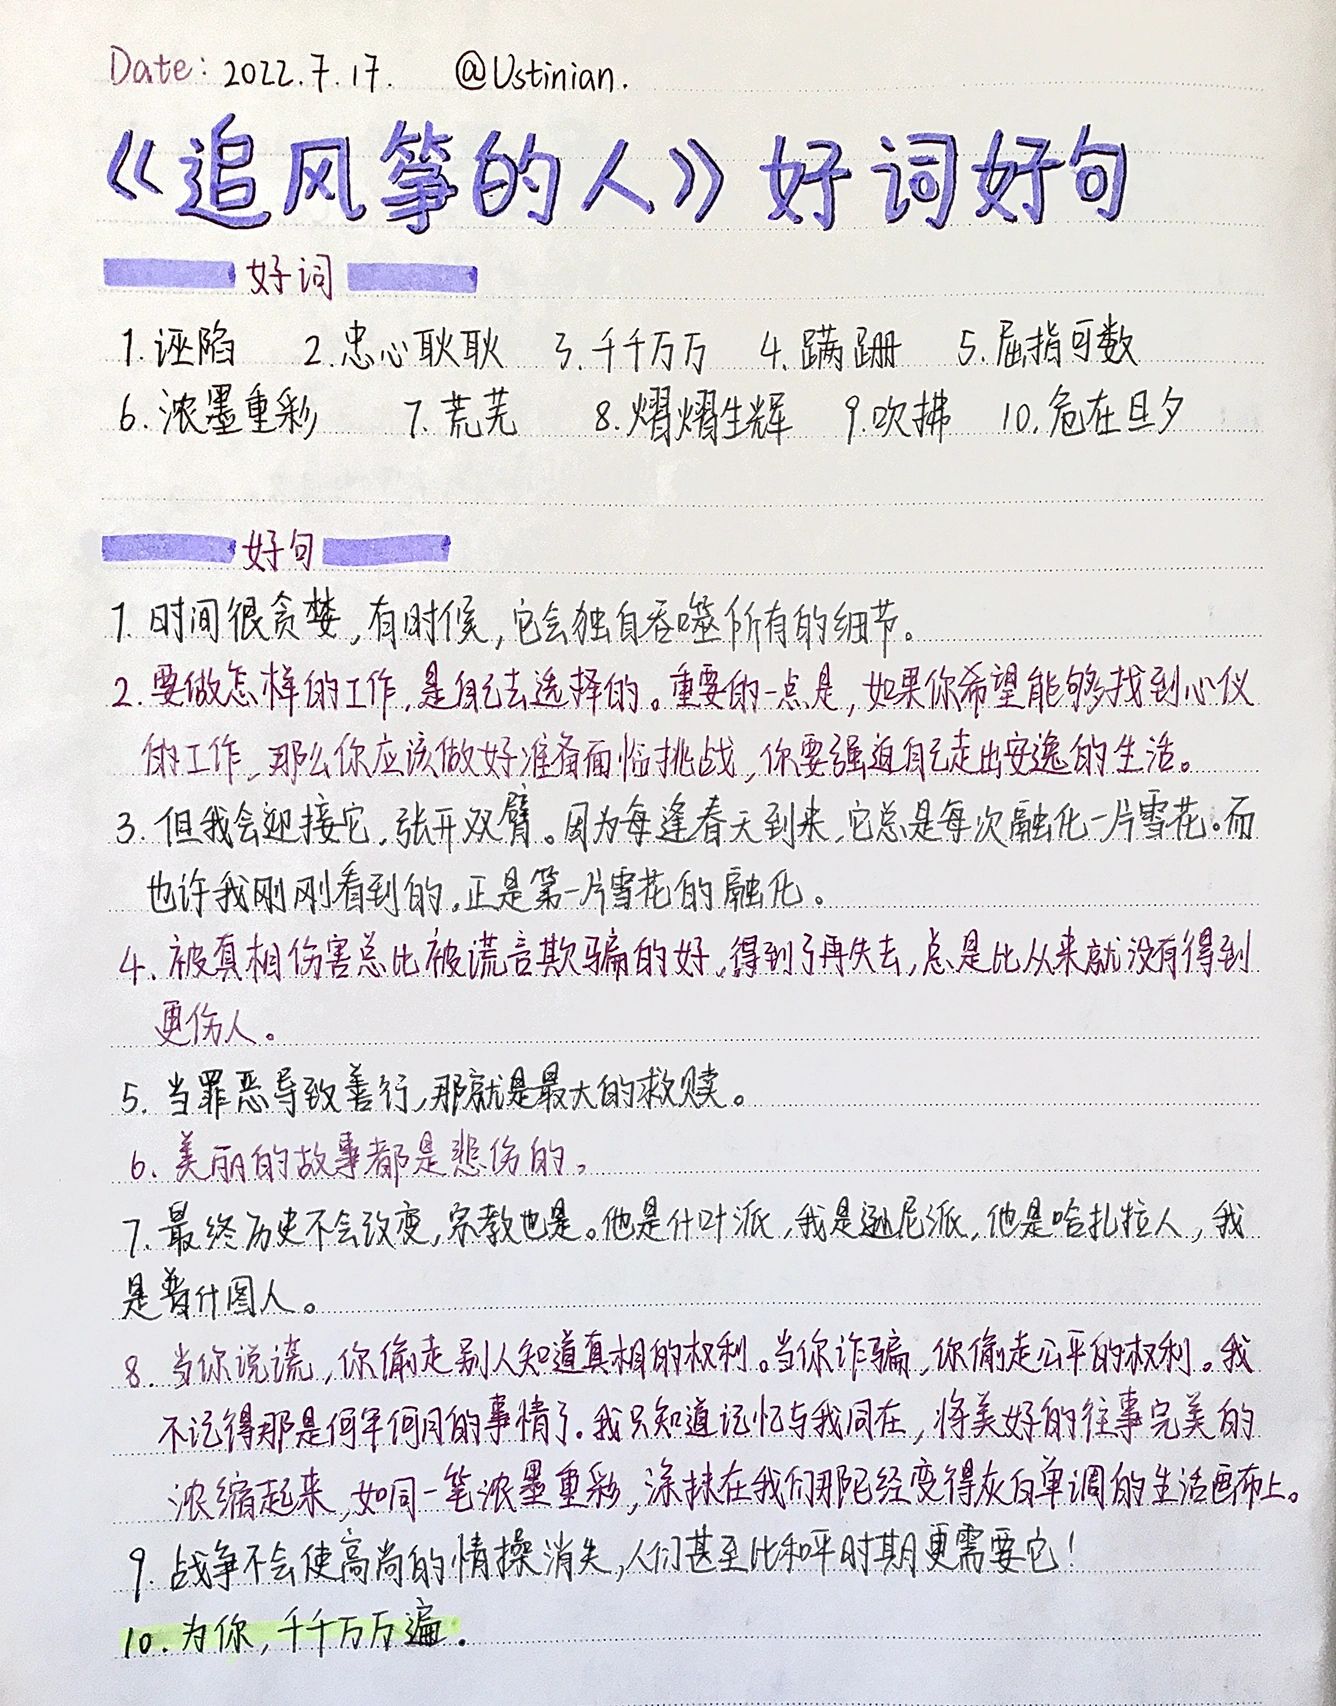 Date: 2022.7.17. @Ustinian.
《追风筝的人》好词好句
好词
1.诬陷 2.忠心耿耿 3.千千万万 4.蹒跚 5.屈指可数
6.浓墨重彩 7.荒芜 8.熠熠生辉 9.吹拂 10.危在旦夕
好句
1.时间很贪婪,有时候,它会独自吞噬所有的细节。
2.要做怎样的工作,是自己去选择的。重要的一点是,如果你希望能够找到心仪
的工作,那么你应该做好准备面临挑战,你要强迫自己走出安逸的生活。
3.但我会迎接它,张开双臂。因为每逢春天到来,它总是每次融化一片雪花。而
也许我刚刚看到的,正是第一片雪花的融化。
4.被真相伤害总比被谎言欺骗的好,得到了再失去,总是比从来就没有得到
更伤人。
5.当罪恶导致善行,那就是最大的救赎。
6.美丽的故事都是悲伤的。
7.最终历史不会改变,宗教也是。他是什叶派,我是逊尼派,他是哈扎拉人,我
是普什图人。
8.当你说谎,你偷走别人知道真相的权利。当你诈骗,你偷走公平的权利。我
不记得那是何年何月的事情了.我只知道记忆与我同在,将美好的往事完美的
浓缩起来,如同一笔浓墨重彩,涂抹在我们那已经变得灰白单调的生活画布上。
9.战争不会使高尚的情操消失,人们甚至比和平时期更需要它!
10.为你,千千万万遍.